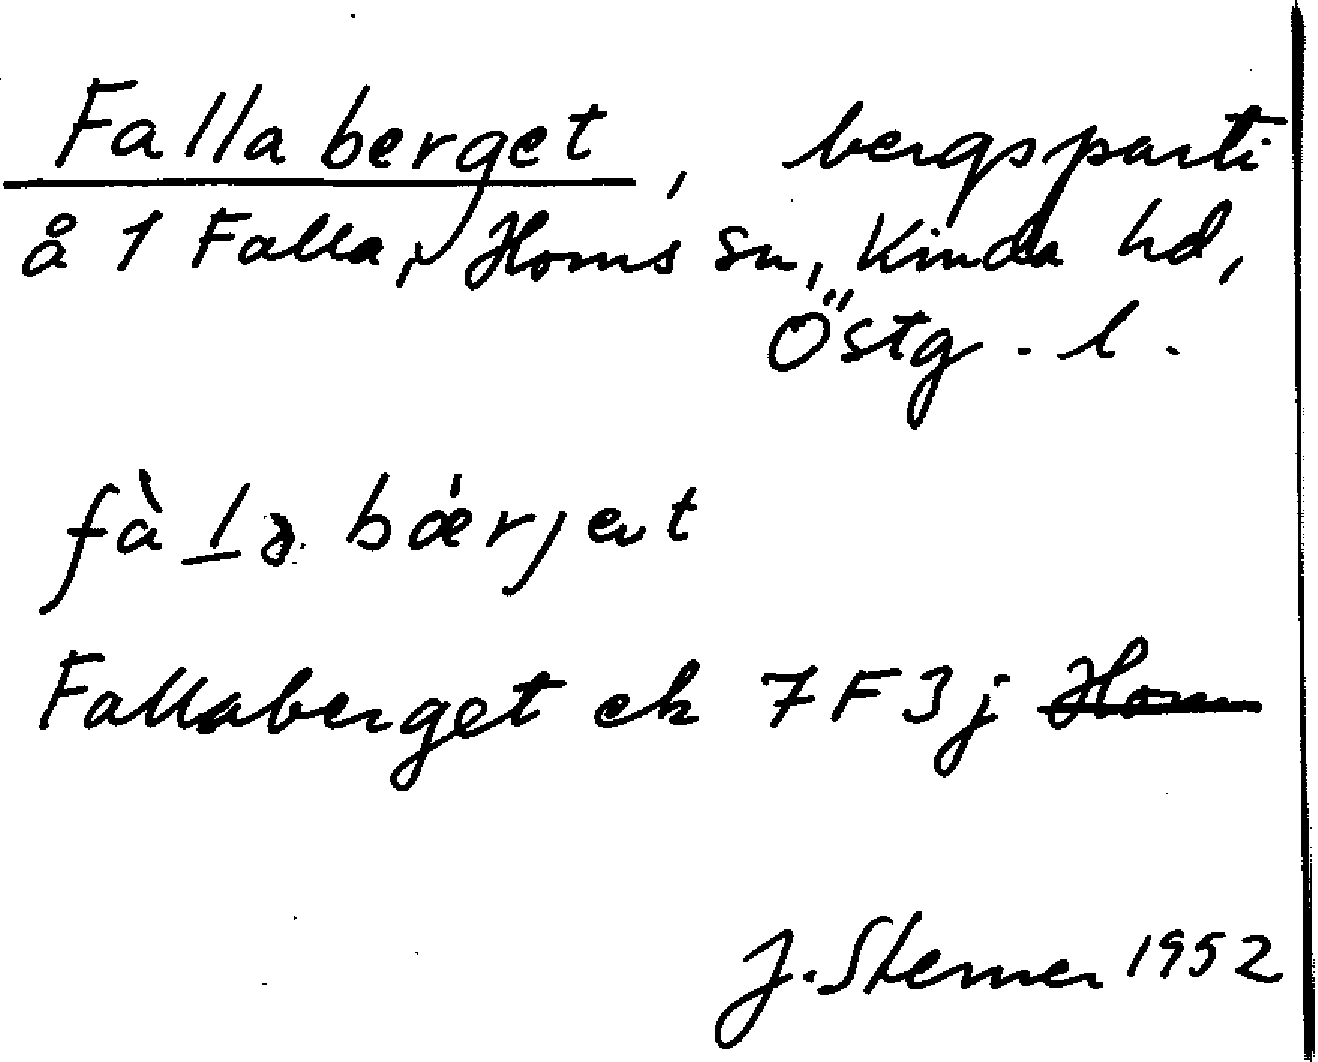 Fallaberget, bergsparti
å 1 Falla, Horns sn, Kinda hd,
Östg. l.
fàlla bǽrjet
Fallaberget ek 7F3j Horn
J. Sterner 1952